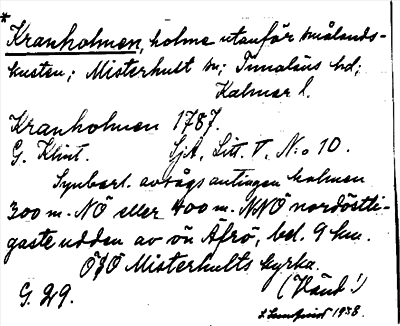 *
Kranholmen, holme utanför Smålands-
kusten; Misterhult sn; Tunaläns hd;
Kalmar l.
Kranholmen 1787.
G. Klint. Sjk, Litt. V, N:o 10.
Synbarl. avsågs antingen holmen
300 m. NÖ eller 400 m. NNÖ nordöstli-
gaste udden av ön Äfrö, bel. 9 km.
ÖSÖ Misterhults kyrka.
G. 29. (Händ!)
1938